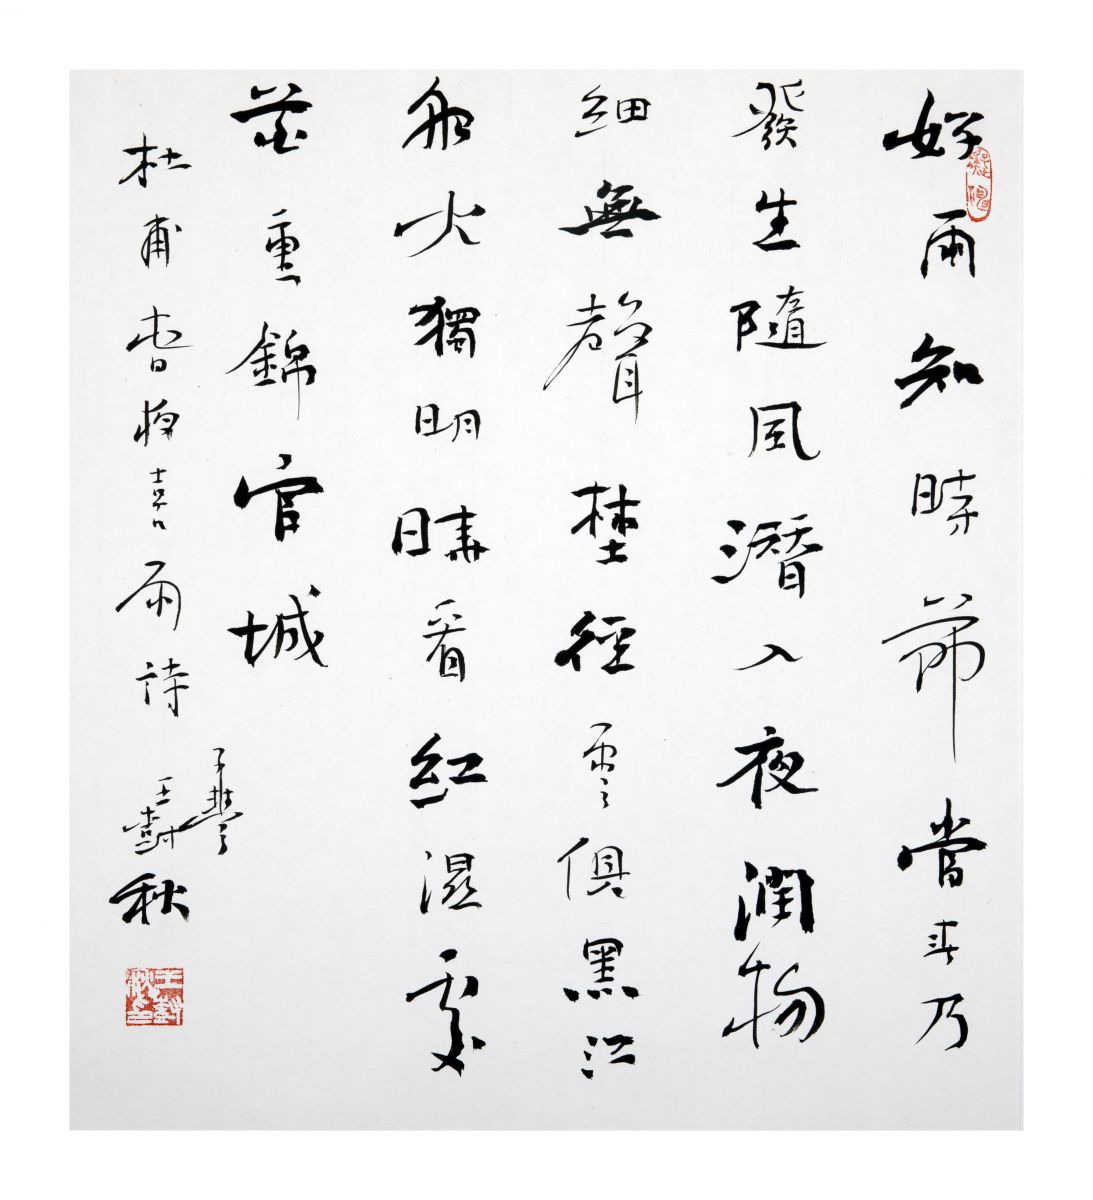 好雨知時節當春乃
發生隨風潛入夜潤物
細無聲埜徑雲俱黑江
船火獨明曉看紅濕處
花重錦官城
杜甫春夜喜雨詩
子豐
王秋